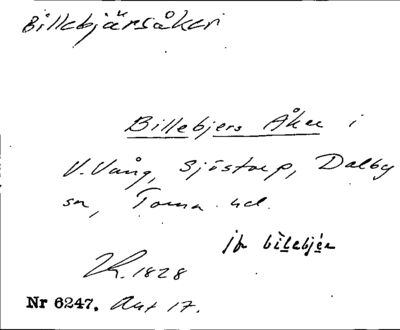 Billebjärsåker
Billebjers Åker i
V. Vång, Sjöstorp, Dalby
sn, Torna hd.
jfr billebjär
LR. 1828
Nr 6247. Akt 17.